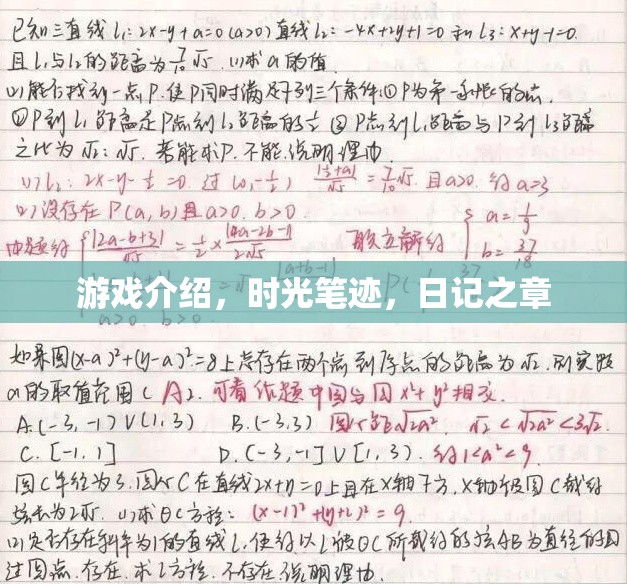 已知三直线l₁:2x-y+a=0(a>0)直线l₂:-4x+2y+1=0和l₃:x+y-1=0.
且l₁与l₂的距离为7/10√5.(1)求a的值.
(2)能否找到一点P.使P同时满足下列三个条件①P为第一象限的点.
②P到l₁的距离是P点到l₂距离的½ ③P点到l₁距离与P到l₃距离
之比为√2:√5.若能求P.不能.说明理由.
(1) l₂:2x-y-½=0 过(0,-½) |½+a|/√5=7/10√5.且a>0.得a=3
(2)设存在P(a,b)且a>0.b>0 a=1/9
由题得 |2a-b+3|/√5=½×|4a-2b-1|/2√5 联立解得 b=37/18
游戏介绍，时光笔迹，日记之章
a>0. b>0
如果圆(x-a)²+(y-a)²=8上总存在两个点到原点的距离为√2.则实数
a的取值范围(A).可看作题中圆与圆x²+y²相交.
A.(-3,-1)∪(1,3) B.(-3,3) 圆心距√2a² √2<√2a²<3√2.
C.[-1,1] D.(-3,-1]∪[1,3).得1<a²<9.
圆C半径为3.圆心C在直线2x+y=0上且在x轴下方.x轴被圆C截得
弦长为2√5.(1)求⊙C方程:(x-1)²+(y+2)²=9.
(2)是否存在斜率为1的直线l.使得以l被⊙C所截得的弦AB为直径的圆
过原点.存在.求l方程.不存在.说明理由.